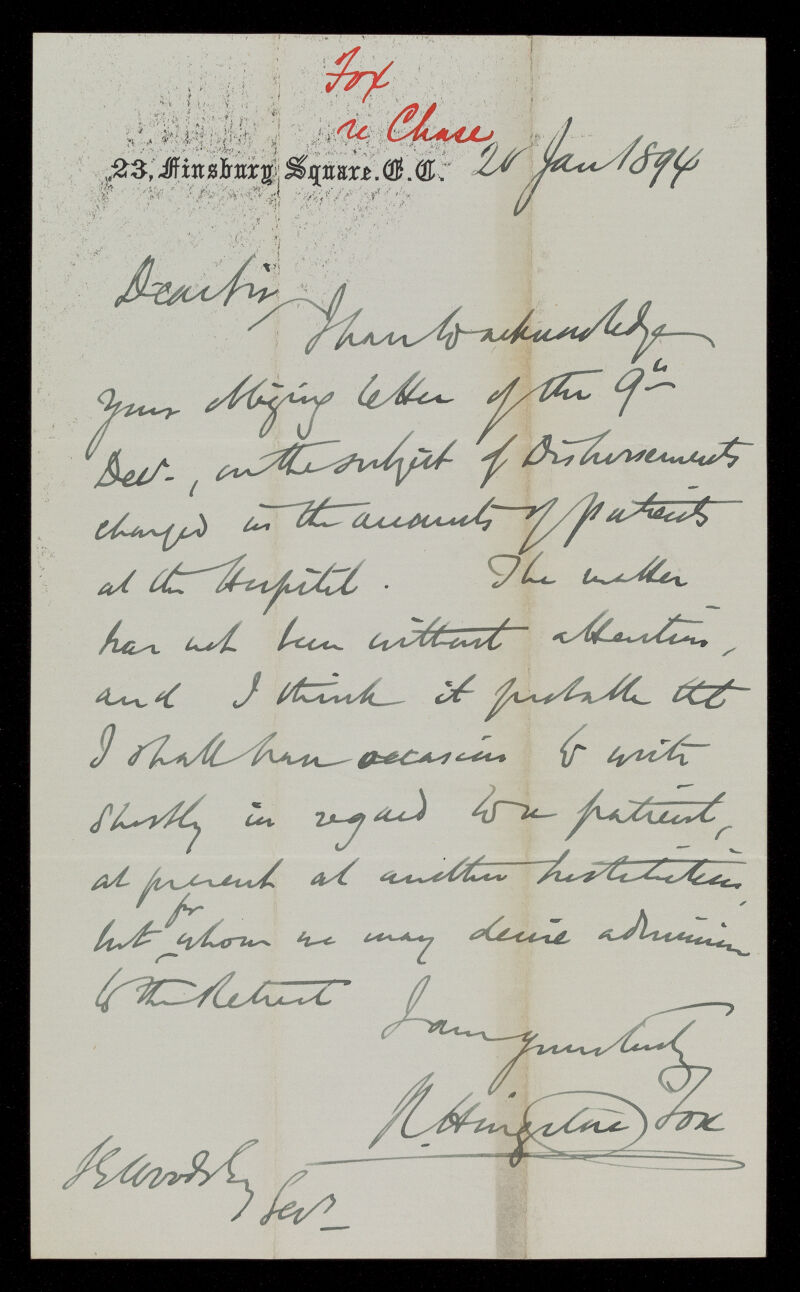 Fox
re Chase
23, Finsbury Square. E.C. 20 Jan 1894
Dear Sir
I have to acknowledge
your obliging letter of the 9th
Decr., on the subject of Disbursements
charged in the accounts of patients
at the Hospital. The matter
has not been without attention,
and I think it probable tht
I shall have occasion to write
shortly in regard to a patient,
at present at another Institution,
but for whom we may desire admission
to the Retreat
I am yours truly
R. Hingston Fox
Woods Esq
Secy